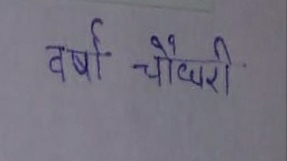 वर्षा चौधरी